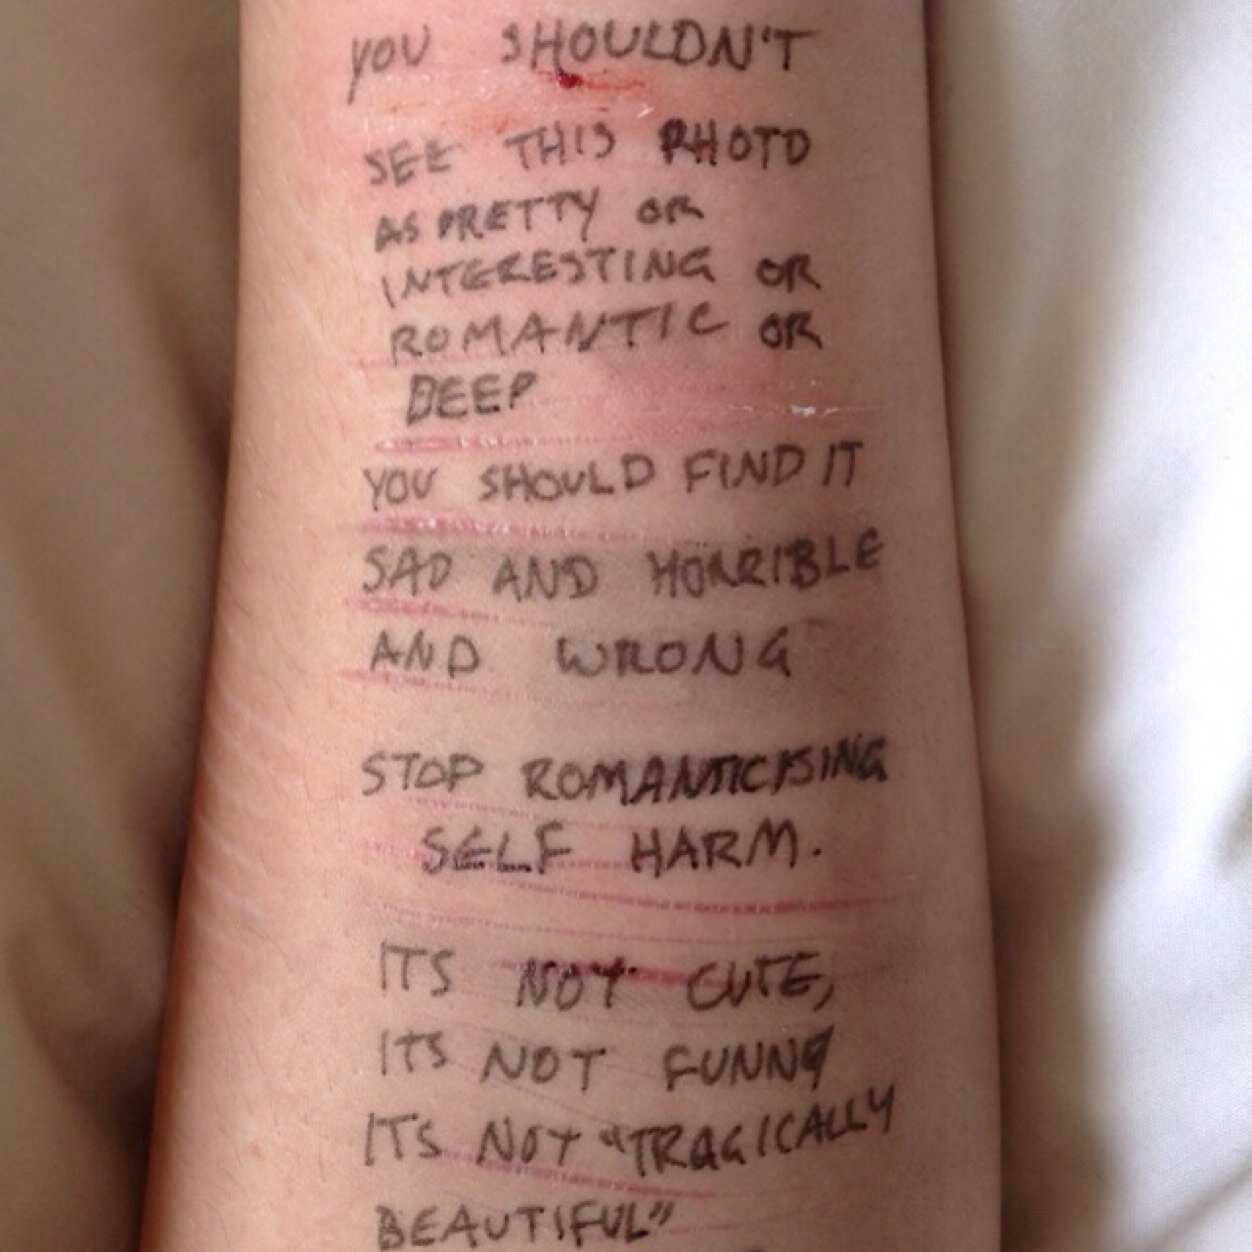 YOU SHOULDN'T
SEE THIS PHOTO
AS PRETTY OR
INTERESTING OR
ROMANTIC OR
DEEP
YOU SHOULD FIND IT
SAD AND HORRIBLE
AND WRONG
STOP ROMANTICISING
SELF HARM.
ITS NOT CUTE,
ITS NOT FUNNY
ITS NOT "TRAGICALLY
BEAUTIFUL"